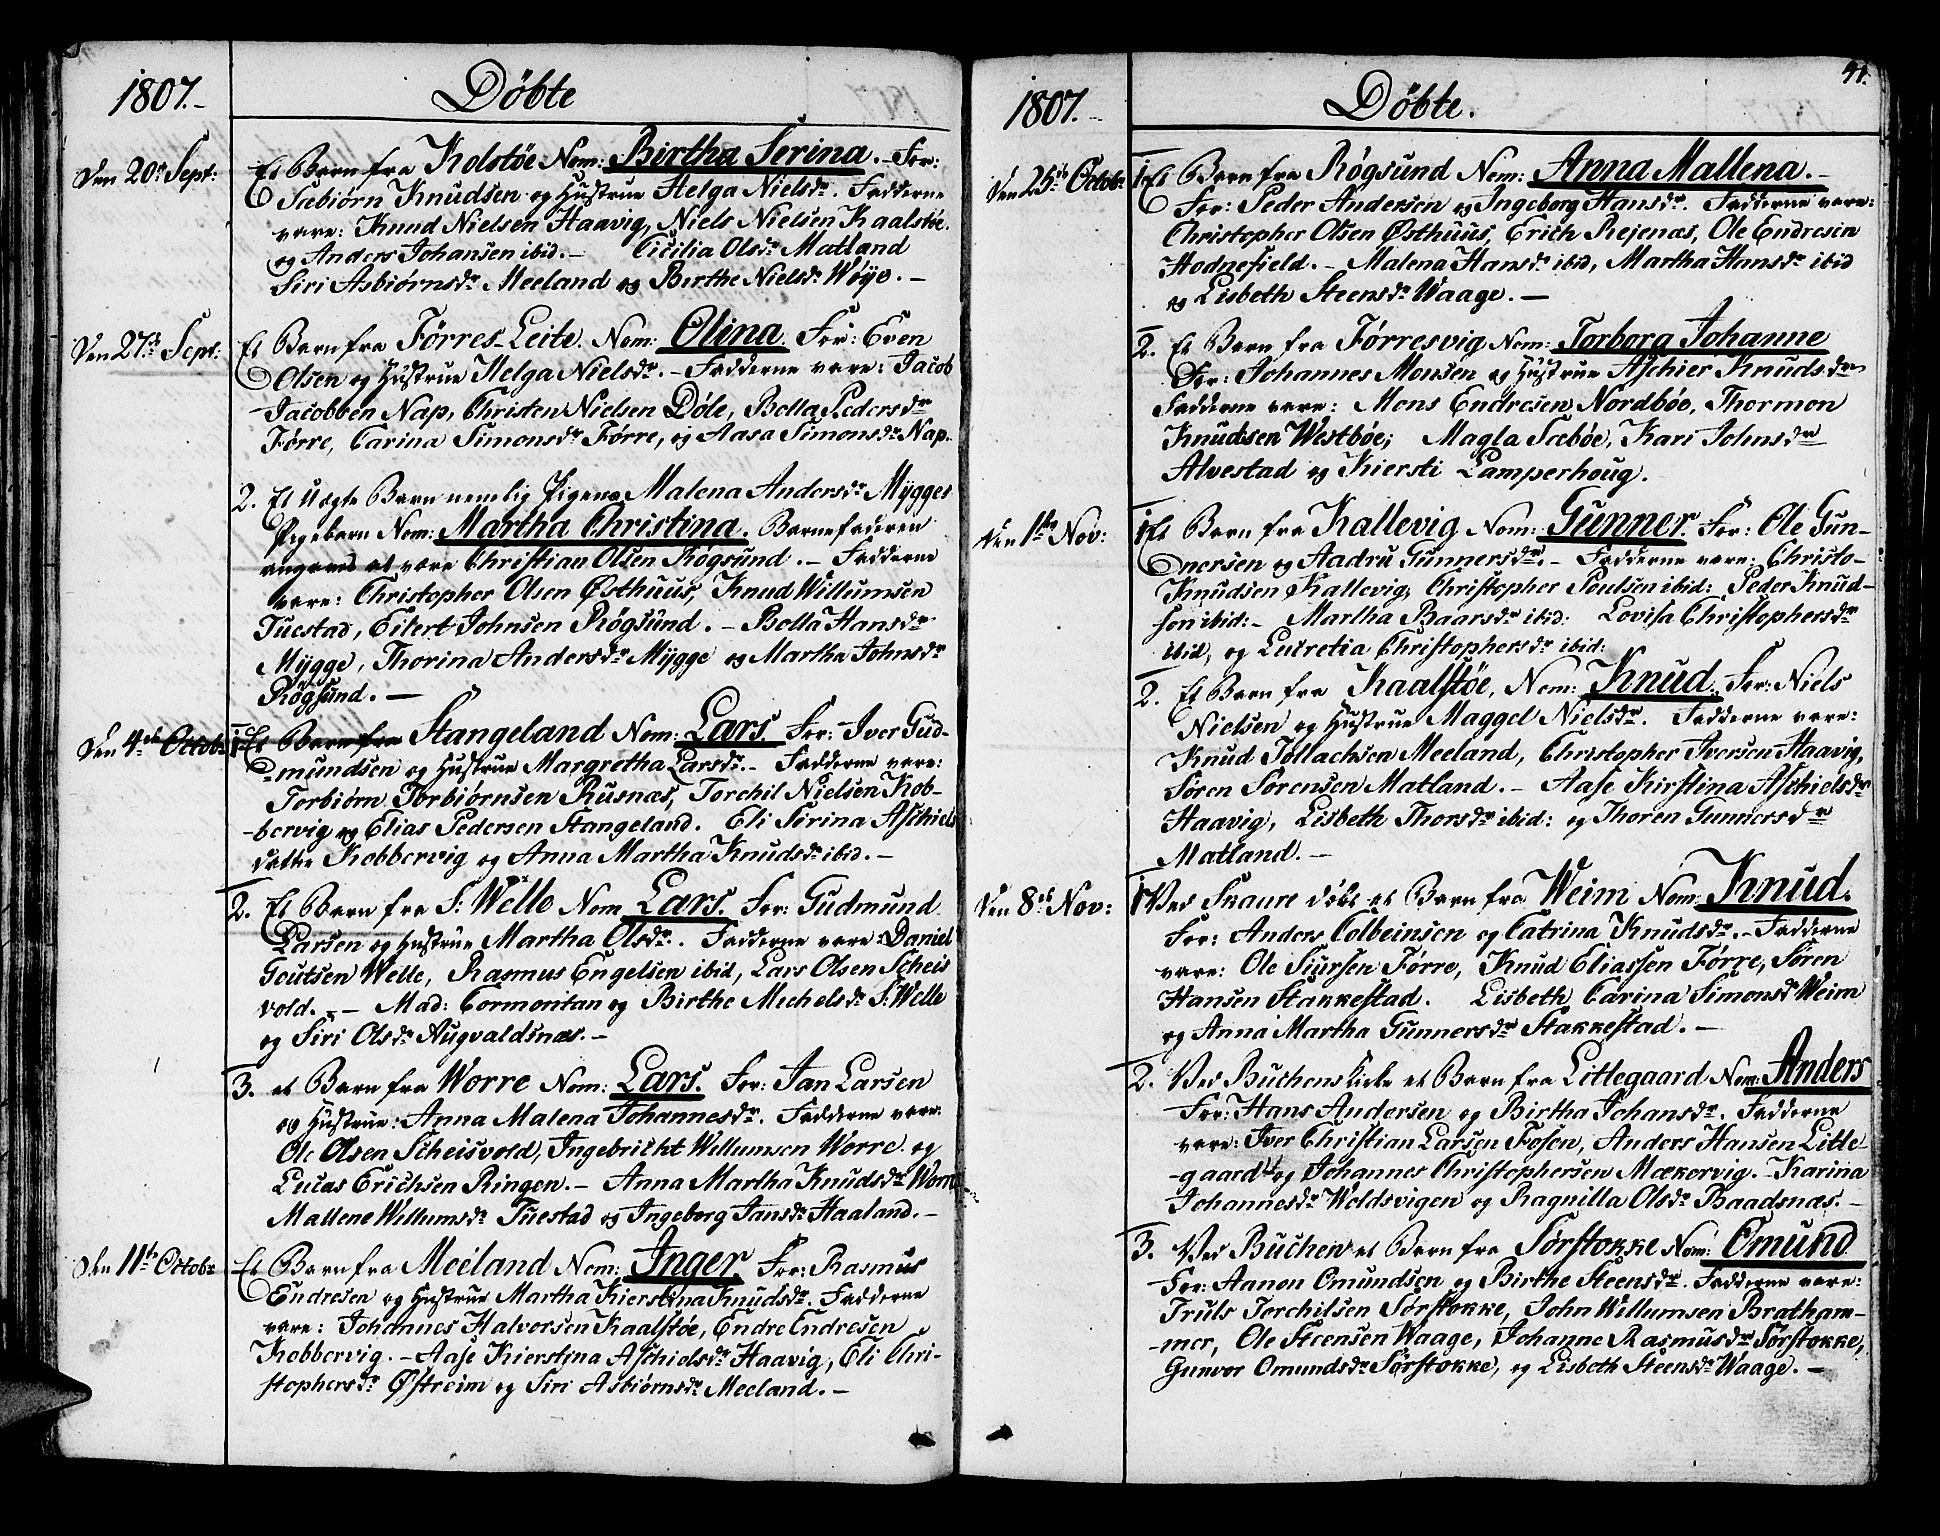 1807.-
Döbte
Den 20de Sept:
Et Barn fra Kolstøe Nom: Birtha Serina. For:
Sæbiörn Knudsen og Hustrue Helga Nielsdr. Fadderne
vare: Knud Nielsen Haavig, Niels Nielsen Kaalstöe.
og Anders Johansen ibid. - Cicilia Olsdr Matland
Siri Asbiørnsdr Meeland og Birthe Nielsdr Wøye. -
Den 27de Sept:
Et Barn fra Førres-Leite Nom: Olina. For: Even
Olsen og Hustrue Helga Nielsdr. - Fadderne vare: Jacob
Jacobsen Nap, Christen Nielsen Døle, Bolla Pedersdr
Førre, Carina Simonsdr Førre, og Aasa Simonsdr Nap.
2. Et Uægte Barn nemlig Pigens Malena Andersdr Mygges
Pigebarn Nom: Martha Christina. Barnefaderen
angives at være Christian Olsen Røgsund. - Fadderne
vare: Christopher Olsen Østhuus, Knud Willumsen
Tuestad, Eilert Johnsen Røgsund. - Bolla Hansdr
Mygge, Thorina Andersdr Mygge og Martha Johnsdr
Røgsund. -
Den 4de Octobr
1 Et Barn fra Stangeland Nom: Lars. For: Iver Gud-
-mundsen og Hustrue Margretha Larsdr. - Fadderne vare:
Torbiørn Torbiørnsen Rusnæs, Torchil Nielsen Kob-
-bervig og Elias Pedersen Stangeland. Eli Sirina Aschiels
datter Kobbervig og Anna Martha Knudsdr ibid. -
2. Et Barn fra S: Welle Nom Lars. For: Gudmund
Larsen og Hustrue Martha Olsdr. Fadderne vare: Daniel
Goutsen Welle, Rasmus Engelsen ibid, Lars Olsen Scheis
vold. - - Mad: Cormontan og Birthe Mechelsdr S: Welle
og Siri Olsdr Augvaldsnæs. -
3. et Barn fra Worre Nom: Lars. For: Jan Larsen
og Hustrue: Anna Malena Johannesdr. Fadderne vare:
Ole Olsen Scheisvold, Ingebricht Wellumsen Worre og
Lucas Erichsen Ringen. - Anna Martha Knudsdr Worre
Mallene Willumsdr Tuestad og Ingeborg Jansdr Haaland. -
Den 11te Octobr
Et Barn fra Meeland Nom: Inger For: Rasmus
Endresen og Hustrue Martha Kierstina Knudsdr. Fadderne
vare: Johannes Halvorsen Kaalstøe, Endre Endresen
Kobbervig. - Aase Kierstina Aschielsdr Haavig, Eli Chri-
stophersdr Østreim og Siri Asbiørnsdr Meeland. -
41.
1807.-
Döbte.
Den 25de Octobr
1 Et Barn fra Røgsund Nom: Anna Mallena. -
For: Peder Andersen og Ingeborg Hansdr. Fadderne vare:
Christopher Olsen Østhuus, Erich Rejenæs, Ole Endresen
Hodnefield. - Malena Hansdr ibid, Martha Hansdr ibid
og Lisbeth Steensdr Waage. -
2. Et Barn fra Førresvig Nom: Torborg Johanne
For: Johannes Monsen og Hustrue Aschier Knudsdr
Fadderne vare: Mons Endresen Nordbøe, Thormon
Knudsen Westbøe; Magla Sæbøe, Kari Johnsdr
Alvestad og Kiersti Lamperhoug.
Den 1ste Nov:
1 Et Barn fra Kallevig Nom: Gunner. For: Ole Gun-
nersen og Aadru Gunnersdr. - Fadderne vare: Christo-
Knudsen Kallevig, Christopher Poulsen ibid: Peder Knud-
sen ibid: - Martha Baarsdr ibid: Lovisa Christophersdr
ibid, og Lucretia Christophersdr ibid:
2. Et Barn fra Kaalstøe, Nom: Knud. For: Niels
Nielsen og Hustrue Maggel Nielsdr. Fadderne vare:
Knud Tollachsen Meeland, Christopher Iversen Haavig,
Søren Sørensen Matland. - Aase Kirstina Aschielsdr
Haavig, Lisbeth Thorsdr ibid: og Thoren Gunnersdr
Matland. -
Den 8de Nov:
1 Ved Skaare döbt et Barn fra Weim Nom: Knud.
For: Anders Colbeinsen og Catrina Knudsdr. - Fadderne
vare: Ole Siursen Førre, Knud Eliassen Førre, Søren
Hansen Stakkestad. Lisbeth Carina Simonsdr Weim
og Anna Martha Gunnersdr Stakkestad. -
2. Ved Buchens Kirke et Barn fra Litlegaard Nom: Anders
For: Hans Andersen og Birtha Johansdr. Fadderne
vare: Iver Christian Larsen Fosen, Anders Hansen Litle
-gaard og Johannes Christophersen Mækervig. - Karina
Johannesdr Woldsvigen og Ragnilla Olsdr Baadsnæs. -
3. Ved Buchen et Barn fra Sørstokke Nom: Omund
For: Aanon Omundsen og Birthe Steensdr. Fadderne vare:
Truls Torchilsen Sørstokke, John Willumsen Bratham-
-mer, Ole Steensen Waage, Johanne Rasmusdr Sørstokke,
Gunvor Omundsdr Sørstokke, og Lisbeth Steensdr Waage. -